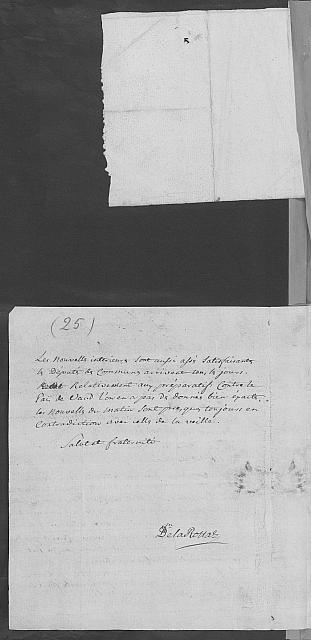 (25)
Les Nouvelle interieures sont aussi assés Satisfaisantes
le Deputés des Communes arrivent tous les jours.
Relativement aux préparatifs Contre le
Païs de Vaud l'on en a pas de données bien
les Nouvelles du matin sont presque toujours en
Contradiction avec celles de la veille.
Salut et fraternité